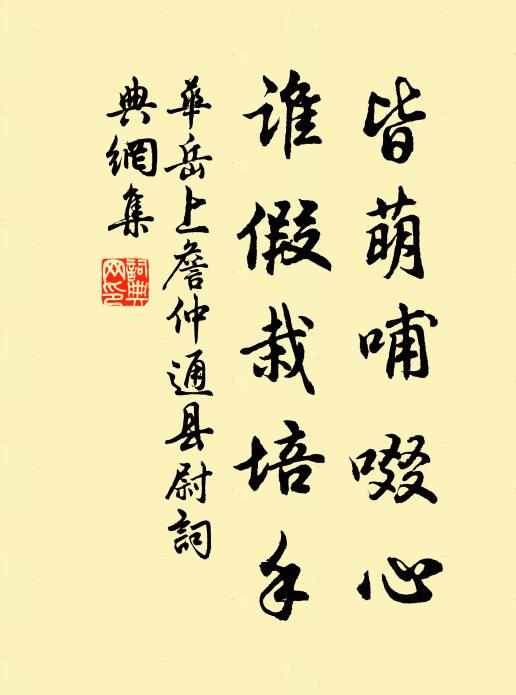 皆萌哺啜心
谁假栽培手
華岳上詹仲通县尉詞
典網集
詞典
网印